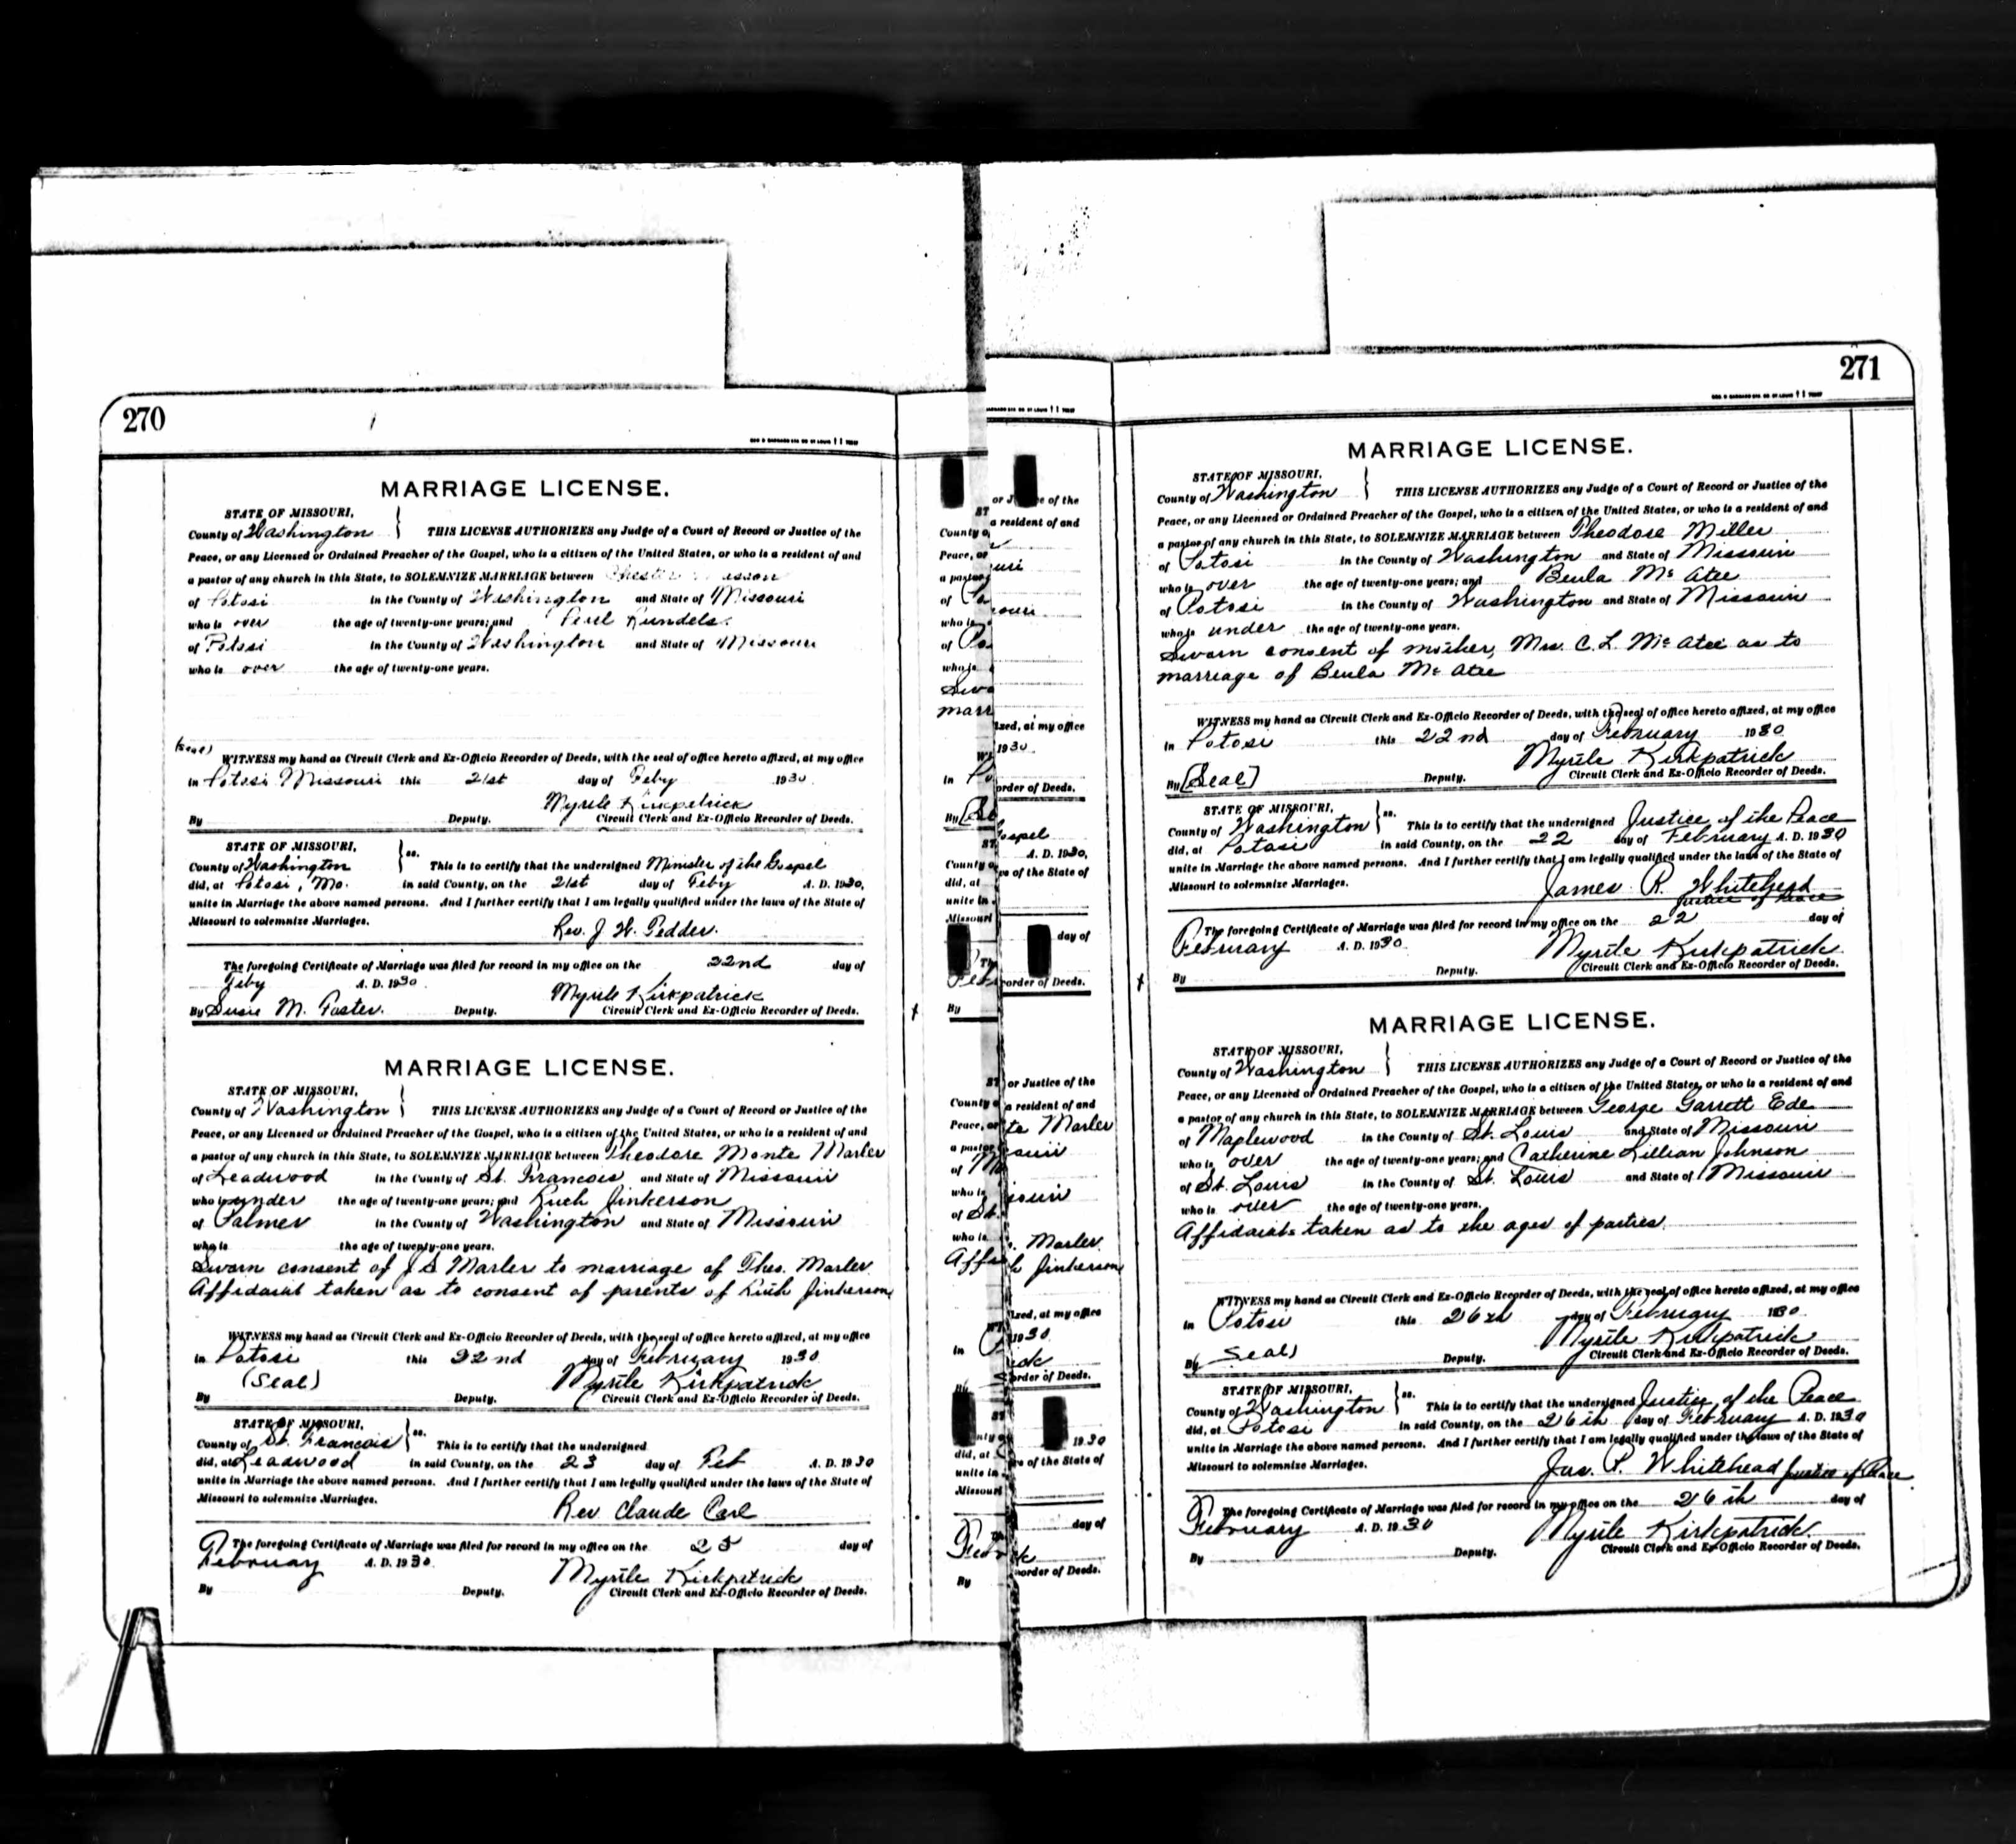 270
MARRIAGE LICENSE.
STATE OF MISSOURI,
County of Washington THIS LICENSE AUTHORIZES any Judge of a Court of Record or Justice of the
Peace, or any Licensed or Ordained Preacher of the Gospel, who is a citizen of the United States, or who is a resident of and
a pastor of any church in this State, to SOLEMNIZE MARRIAGE between Chester
of Potosi in the County of Washington and State of Missouri
who is over the age of twenty-one years; and Rundels.
of Potosi in the County of Washington and State of Missouri
who is over the age of twenty-one years.
(Seal)
WITNESS my hand as Circuit Clerk and Ex-Officio Recorder of Deeds, with the seal of office hereto affixed, at my office
in Potosi Missouri this 21st day of Feby 1930.
Myrtle Kirkpatrick
By Deputy. Circuit Clerk and Ex-Officio Recorder of Deeds.
STATE OF MISSOURI,
County of Washington ss. This is to certify that the undersigned Minister of the Gospel
did, at Potosi, Mo. in said County, on the 21st day of Feby A. D. 1930,
unite in Marriage the above named persons. And I further certify that I am legally qualified under the laws of the State of
Missouri to solemnize Marriages.
Rev. J. W. Pedder.
The foregoing Certificate of Marriage was filed for record in my office on the 22nd day of
Feby A. D. 1930.
Myrtle Kirkpatrick
By Susie M. Paster. Deputy. Circuit Clerk and Ex-Officio Recorder of Deeds.
MARRIAGE LICENSE.
STATE OF MISSOURI,
County of Washington THIS LICENSE AUTHORIZES any Judge of a Court of Record or Justice of the
Peace, or any Licensed or Ordained Preacher of the Gospel, who is a citizen of the United States, or who is a resident of and
a pastor of any church in this State, to SOLEMNIZE MARRIAGE between Theodore Monte Marler
of Leadwood in the County of St. Francois and State of Missouri
who is under the age of twenty-one years; and Ruth Jinkerson
of Palmer in the County of Washington and State of Missouri
who is the age of twenty-one years.
Sworn consent of J S Marler to marriage of Theo. Marler
Affidavit taken as to consent of parents of Ruth Jinkerson
WITNESS my hand as Circuit Clerk and Ex-Officio Recorder of Deeds, with the seal of office hereto affixed, at my office
in Potosi this 22nd day of February 1930
(Seal) Myrtle Kirkpatrick
By Deputy. Circuit Clerk and Ex-Officio Recorder of Deeds.
STATE OF MISSOURI,
County of St. Francois ss. This is to certify that the undersigned
did, at Leadwood in said County, on the 23 day of Feb A. D. 1930
unite in Marriage the above named persons. And I further certify that I am legally qualified under the laws of the State of
Missouri to solemnize Marriages.
Rev Claude Carl
The foregoing Certificate of Marriage was filed for record in my office on the 25 day of
February A. D. 1930.
Myrtle Kirkpatrick
By Deputy. Circuit Clerk and Ex-Officio Recorder of Deeds.
271
MARRIAGE LICENSE.
STATE OF MISSOURI,
County of Washington THIS LICENSE AUTHORIZES any Judge of a Court of Record or Justice of the
Peace, or any Licensed or Ordained Preacher of the Gospel, who is a citizen of the United States, or who is a resident of and
a pastor of any church in this State, to SOLEMNIZE MARRIAGE between Theodore Miller
of Potosi in the County of Washington and State of Missouri
who is over the age of twenty-one years; and Beula Mc Atee
of Potosi in the County of Washington and State of Missouri
who is under the age of twenty-one years.
Sworn consent of mother, Mrs. C. L. Mc Atee as to
marriage of Beula Mc Atee
WITNESS my hand as Circuit Clerk and Ex-Officio Recorder of Deeds, with the seal of office hereto affixed, at my office
in Potosi this 22nd day of February 1930
Myrtle Kirkpatrick
By [Seal] Deputy. Circuit Clerk and Ex-Officio Recorder of Deeds.
STATE OF MISSOURI,
County of Washington ss. This is to certify that the undersigned Justice of the Peace
did, at Potosi in said County, on the 22 day of February A. D. 1930
unite in Marriage the above named persons. And I further certify that I am legally qualified under the laws of the State of
Missouri to solemnize Marriages.
James R. Whitehead
Justice of Peace
The foregoing Certificate of Marriage was filed for record in my office on the 22 day of
February A. D. 1930.
Myrtle Kirkpatrick
By Deputy. Circuit Clerk and Ex-Officio Recorder of Deeds.
MARRIAGE LICENSE.
STATE OF MISSOURI,
County of Washington THIS LICENSE AUTHORIZES any Judge of a Court of Record or Justice of the
Peace, or any Licensed or Ordained Preacher of the Gospel, who is a citizen of the United States, or who is a resident of and
a pastor of any church in this State, to SOLEMNIZE MARRIAGE between George Garrett Ede
of Maplewood in the County of St. Louis and State of Missouri
who is over the age of twenty-one years; and Catherine Lillian Johnson
of St. Louis in the County of St. Louis and State of Missouri
who is over the age of twenty-one years.
Affidavits taken as to the ages of parties.
WITNESS my hand as Circuit Clerk and Ex-Officio Recorder of Deeds, with the seal of office hereto affixed, at my office
in Potosi this 26th day of February 1930.
Myrtle Kirkpatrick
By Seal) Deputy. Circuit Clerk and Ex-Officio Recorder of Deeds.
STATE OF MISSOURI,
County of Washington ss. This is to certify that the undersigned Justice of the Peace
did, at Potosi in said County, on the 26th day of February A. D. 1930
unite in Marriage the above named persons. And I further certify that I am legally qualified under the laws of the State of
Missouri to solemnize Marriages.
Jas. R. Whitehead Justice of Peace
The foregoing Certificate of Marriage was filed for record in my office on the 26th day of
February A. D. 1930
Myrtle Kirkpatrick.
By Deputy. Circuit Clerk and Ex-Officio Recorder of Deeds.